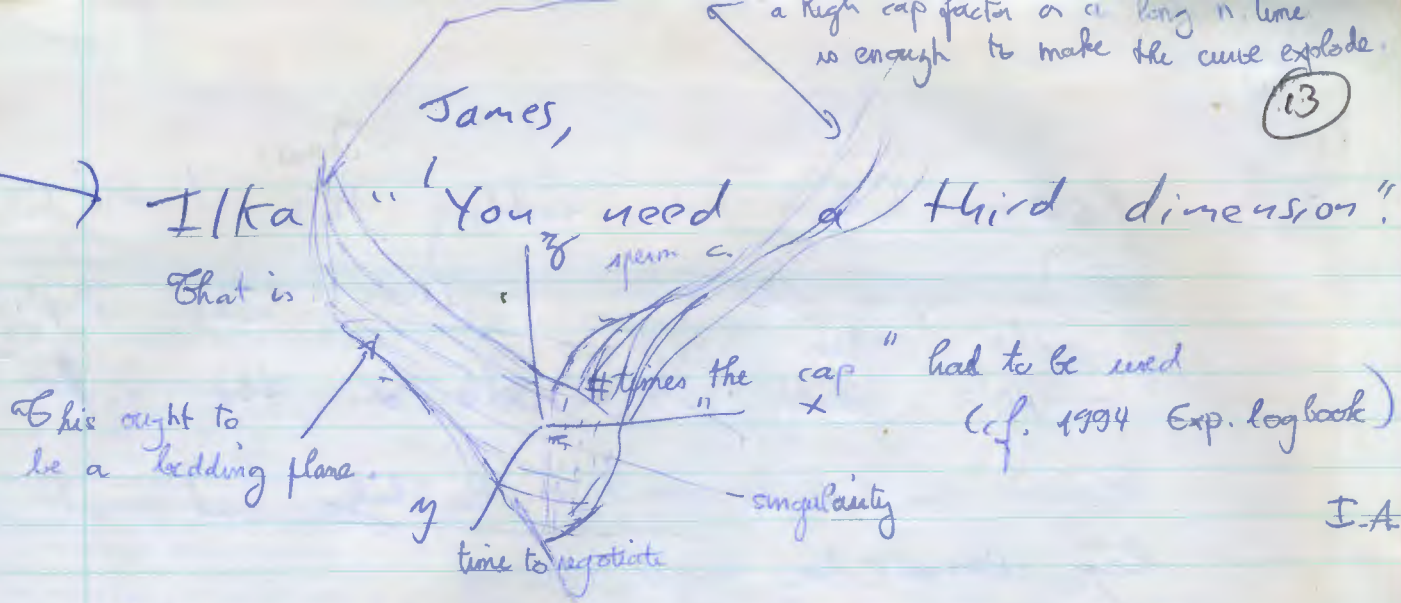 a high cap factor or a long n. time
is enough to make the curve explode.
13
James,
Ilka "'You need a third dimension".
z
sperm c.
That is
#times the "cap" had to be used
x
(cf. 1994 Exp. logbook)
This ought to
be a bedding plane.
singularity
y
I.A
time to negotiate